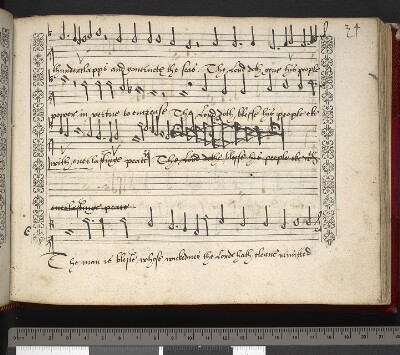 34
thunderclapps and ... the seas. The Lord doth geve his people
power in vertue to encrease The Lord doth blesse his people eke
with everlastinge peace The Lord dothe blesse his people eke with
everlastinge peace
The man is bleste whose wickednes the Lorde hath cleane remitted